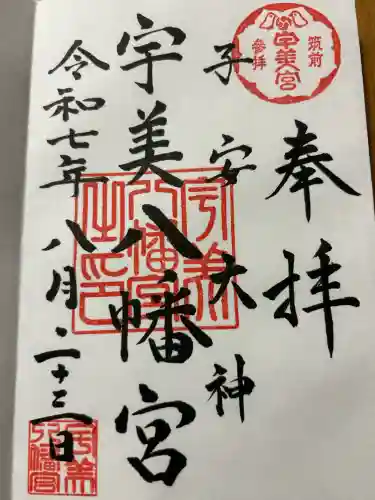 奉拝
筑前
宇美宮
參拝
子安大神
宇美八幡宮
宇美八幡宮之印
令和七年八月二十三日
宇美八幡宮